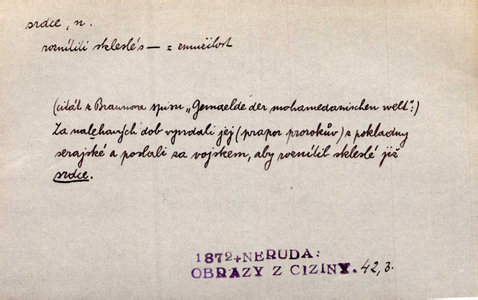 srdce, n.
roznítiti skleslé s — = zmužilost
(citát z Braunova spisu „Gemaelde der mohamedanischen welt“:)
Za nalehavých dob vyndali jej (prapor prorokův) z pokladny
serajské a poslali za vojskem, aby roznítil skleslé již
srdce.
1872, NERUDA:
OBRAZY Z CIZINY. 42, 3.